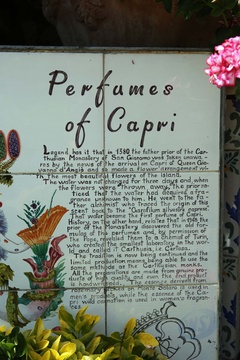 Perfumes
of Capri
Legend has it that in 1380 the father prior of the Car-
thusian Monastery of San Giacomo was taken unawa-
res by the news of the arrival in Capri of Queen Gio-
vanna d'Angiò and so made a flower arrangement
with the most beautiful flowers of the island.
The water was not changed for three days and, when
the flowers were thrown away, the prior no-
ticed that the water had acquired a fra-
grance unknown to him. He went to the fa-
ther alchemist who traced the origin of the
scent back to the
That water became the first perfume of Capri.
History, on the other hand, relates that in 1948 the
prior of the Monastery discovered the old for-
mulas of the perfumes and, by permission of
the Pope, revealed them to a chemist of Turin,
who created the smallest laboratory in the wor-
ld, and called it Carthusia, i.e. Certosa.
The tradition is now being continued and the
limited production means being able to use the
same methods as the Carthusian monks.
All the preparations are made from
ducts of
is
rosemary picked on Monte Solaro is used in
men's products, while the essence of the Ca-
pri wild carnation is used in women's fragran-
ces.